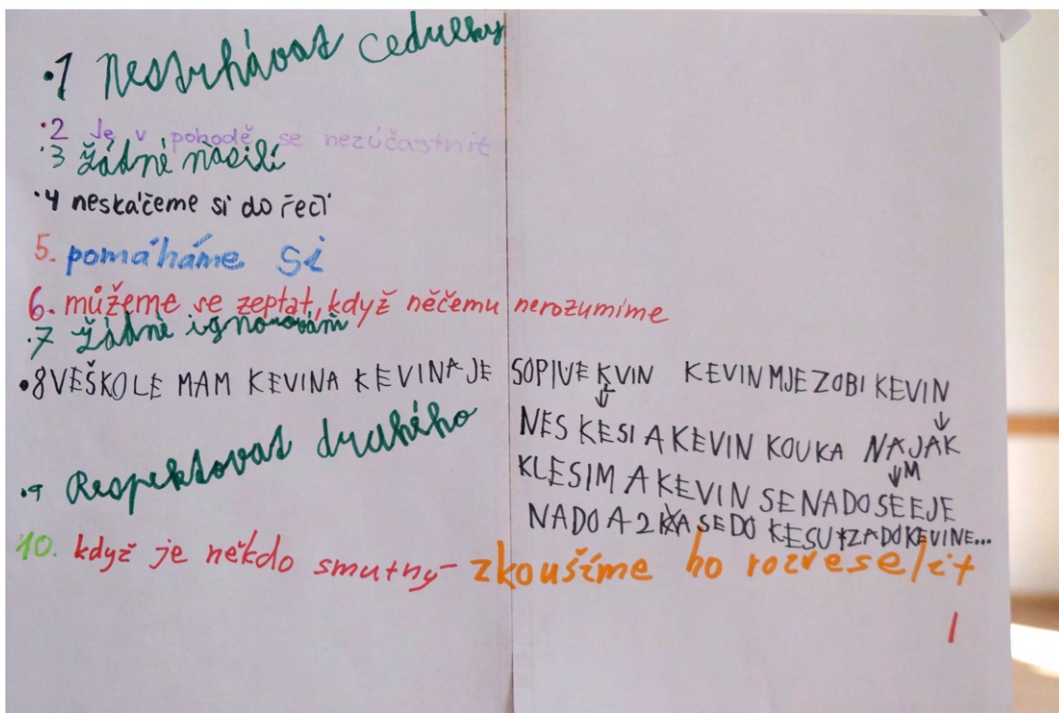 ·1 Nestrhávat cedulky
·2 Je v pohodě se nezúčastnit
·3 žádné násilí
·4 neskáčeme si do řečí
5. pomáháme si
6. můžeme se zeptat, když něčemu nerozumíme
·7 žádné ignorování
·8 VEŠKOLE MAM KEVINA KEVINA JE SOPIVE KVIN KEVIN MJE ZOBI KEVIN
NES KESI A KEVIN KOUKA NAJAK
KLESIM A KEVIN SE NADO SEEJE
NADO A 2 SE DO KESU ZADO KEVINE...
·9 Respektovat druhého
10. když je někdo smutny- zkoušíme ho rozveselit
1